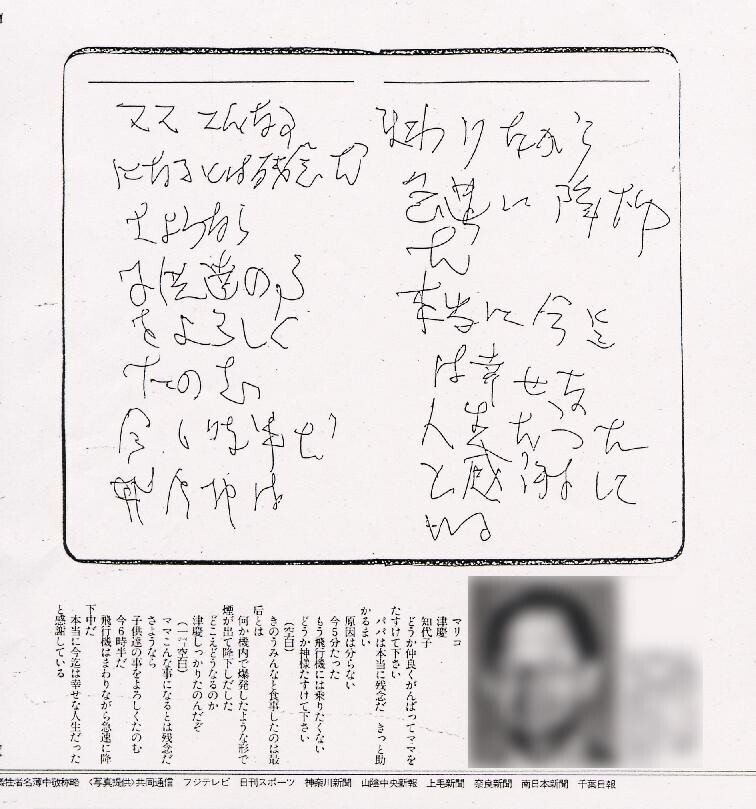 ママ こんな事
になるとは残念だ
さようなら
子供達の事
をよろしく
たのむ
今6時半だ
飛行機は
まわりながら
急速に降下中
だ
本当に今迄
は幸せな
人生だった
と感謝して
いる
マリコ
津慶
知代子
どうか仲良くがんばってママを
たすけて下さい
パパは本当に残念だ きっと助
かるまい
原因は分らない
今5分たった
もう飛行機には乗りたくない
どうか神様たすけて下さい
(空白)
きのうみんなと食事したのは最
后とは
何か機内で爆発したような形で
煙が出て降下しだした
どこえどうなるのか
津慶しっかりたのんだぞ
(一頁空白)
ママこんな事になるとは残念だ
さようなら
子供達の事をよろしくたのむ
今6時半だ
飛行機はまわりながら急速に降
下中だ
本当に今迄は幸せな人生だった
と感謝している
牲者名簿中敬称略 〈写真提供〉共同通信 フジテレビ 日刊スポーツ 神奈川新聞 山陰中央新報 上毛新聞 奈良新聞 南日本新聞 千葉日報